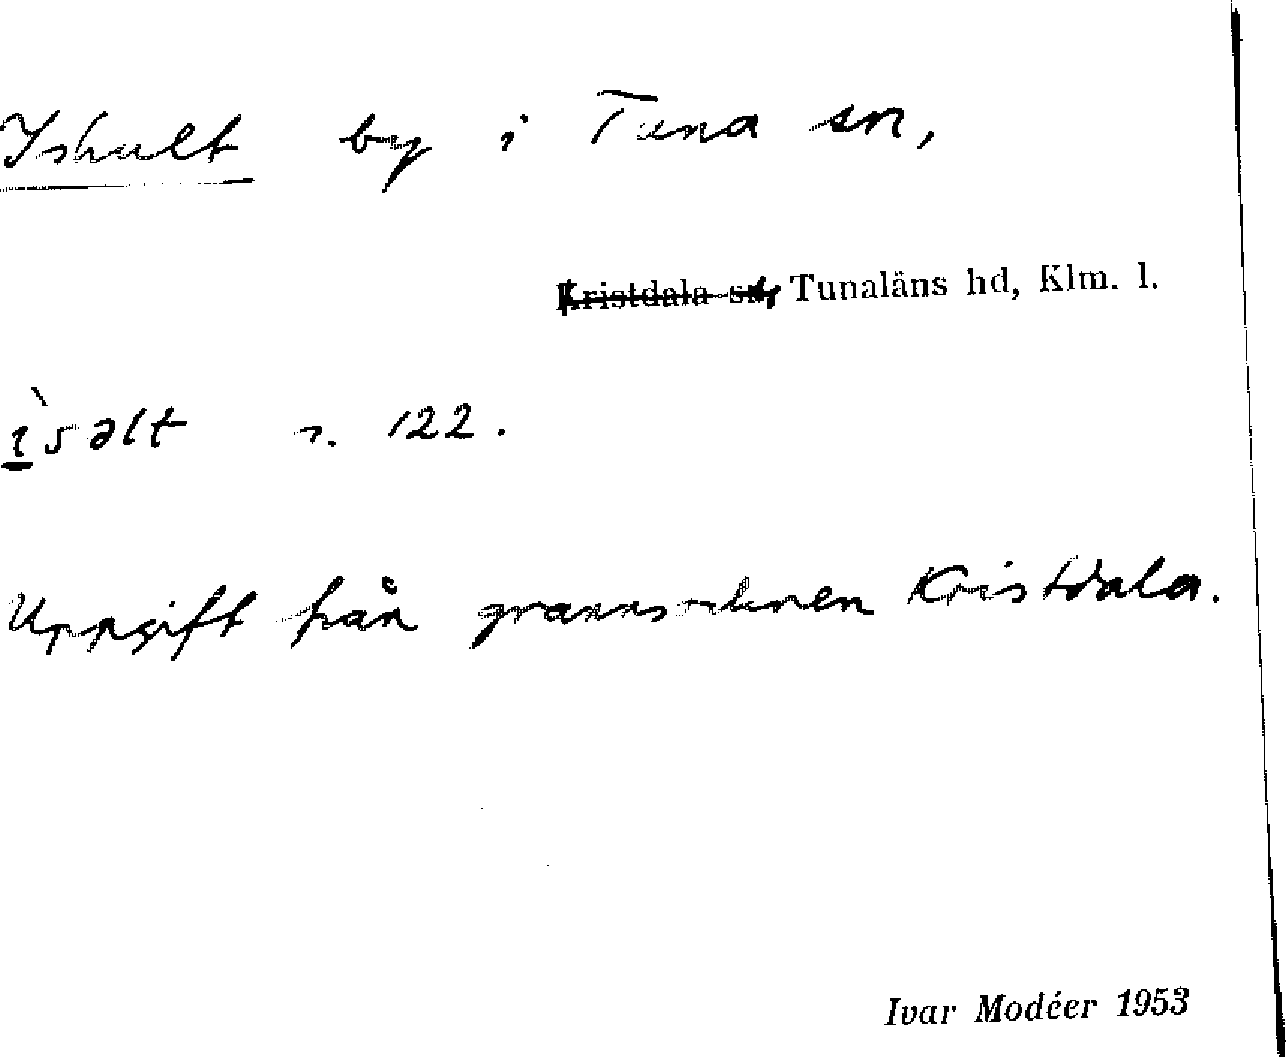 Ishult by i Tuna sn,
Kristdala sn, Tunaläns hd, Klm. l.
ı̀səlt s. 122.
Uppgift från grannsocknen Kristdala.
Ivar Modéer 1953